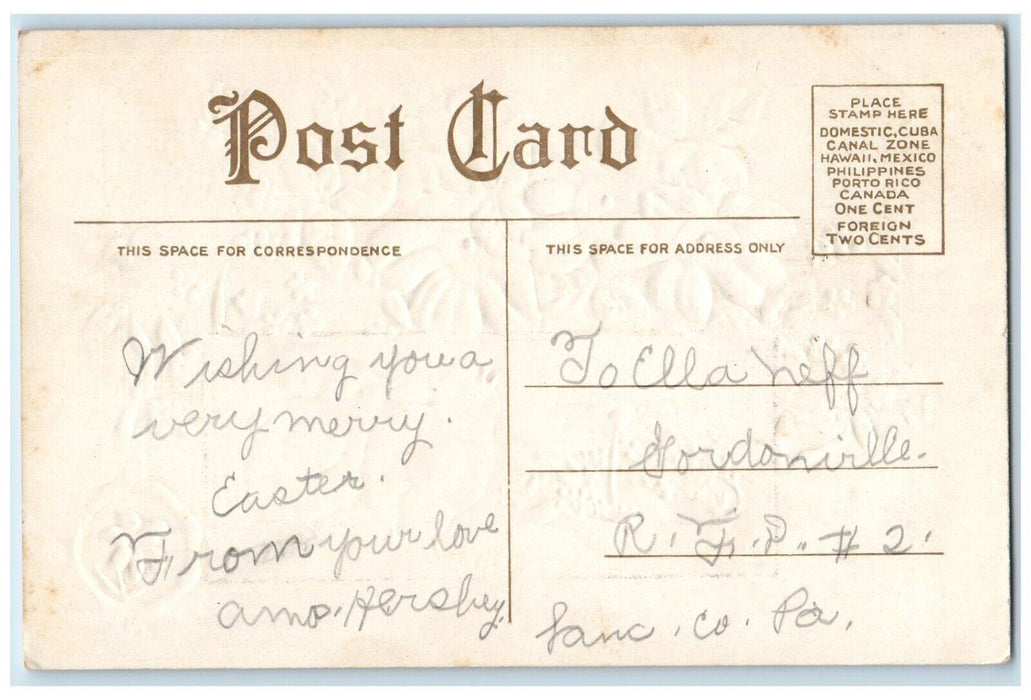 Post Card
PLACE
STAMP HERE
DOMESTIC, CUBA
CANAL ZONE
HAWAII, MEXICO
PHILIPPINES
PORTO RICO
CANADA
ONE CENT
FOREIGN
TWO CENTS
THIS SPACE FOR CORRESPONDENCE
Wishing you a
very merry.
Easter.
From your love
Amo. Hershey.
THIS SPACE FOR ADDRESS ONLY
To Ella Neff
Gordonville.
R. F. D. # 2.
Lanc. Co. Pa.